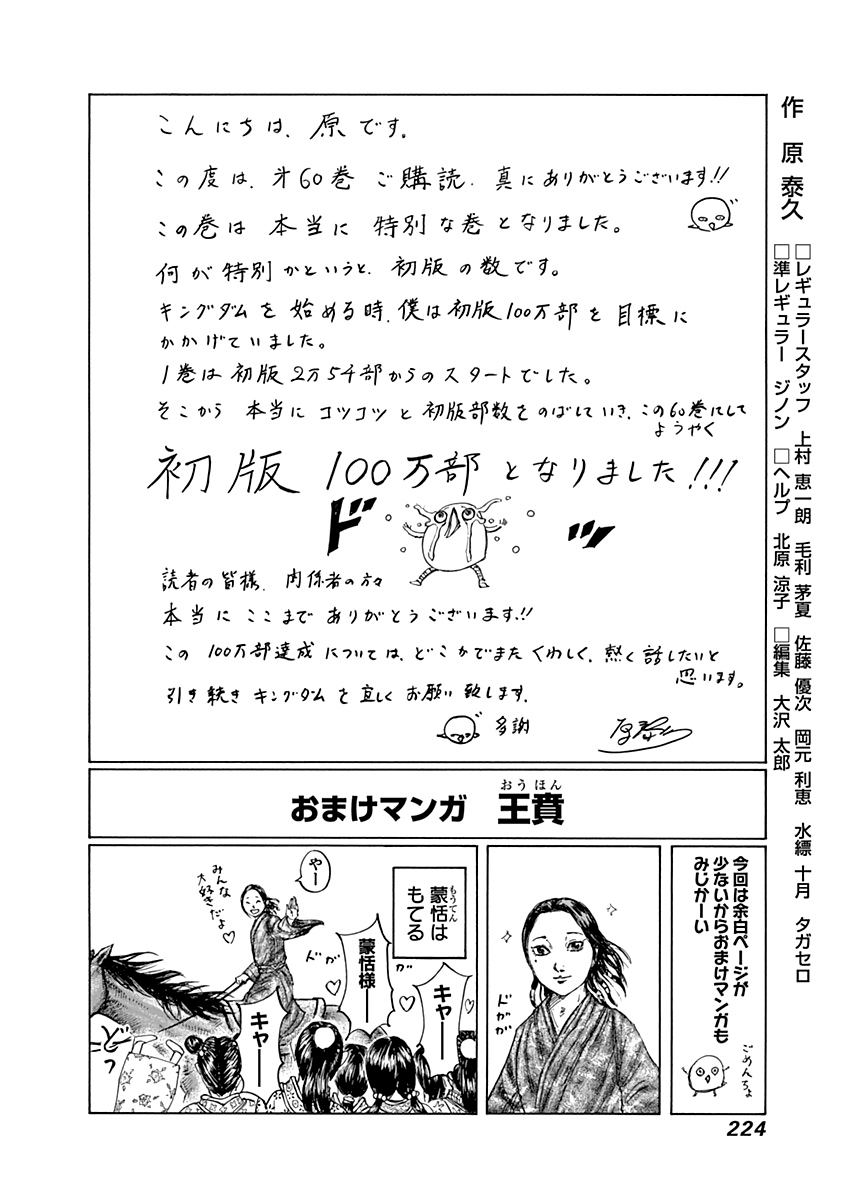 作 原 泰久
□レギュラースタッフ 上村 恵一朗 毛利 茅夏 佐藤 優次 岡元 利恵 水縹 十月 タガセロ
□準レギュラー ジノン □ヘルプ 北原 涼子 □編集 大沢 太郎
こんにちは、原です。
この度は、㐧60巻 ご購読、真にありがとうございます!!
この巻は 本当に 特別な巻となりました。
何が特別かというと、初版の数です。
キングダムを始める時、僕は初版100万部を目標に
かかげていました。
1巻は初版2万5千部からのスタートでした。
そこから 本当に コツコツと初版部数をのばしていき、この60巻にして
ようやく
初版 100万部となりました!!!
ド ッ
読者の皆様、関係者の方々
本当に ここまで ありがとうございます!!
この 100万部達成については、どこかでまた くわしく、熱く話したいと
思います。
引き続き キングダムを宜しくお願い致します。
多謝
おまけマンガ 王賁
おうほん
今回は余白ページが
少ないからおまけマンガも
みじかーい
ごめんちょ
ドガガ
蒙恬は
もうてん
もてる
やー
みんな
大好きだよ♡
ドガ
ガ
キャー
蒙恬様ー
キャー
どっ
224